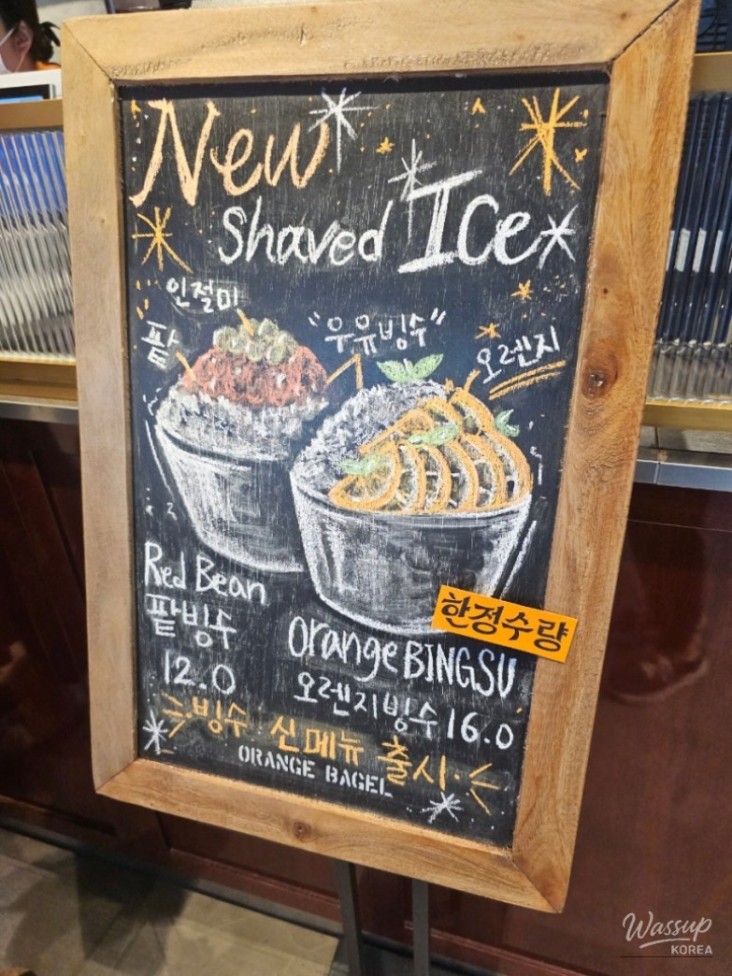 New
Shaved Ice
인절미
팥
"우유빙수"
오렌지
Red Bean
팥빙수
12.0
한정수량
Orange BINGSU
오렌지빙수 16.0
빙수 신메뉴 출시
ORANGE BAGEL
Wassup
KOREA